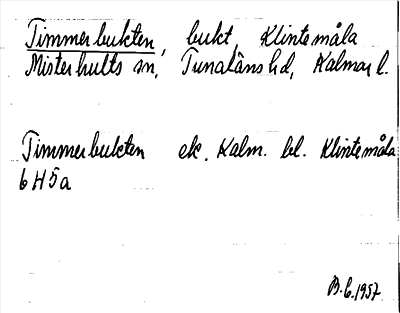 Timmerbukten, bukt, Klintemåla
Misterhults sn, Tunaläns hd, Kalmar l.
Timmerbukten ek. Kalm. bl. Klintemåla
6H5a
B.C. 1957